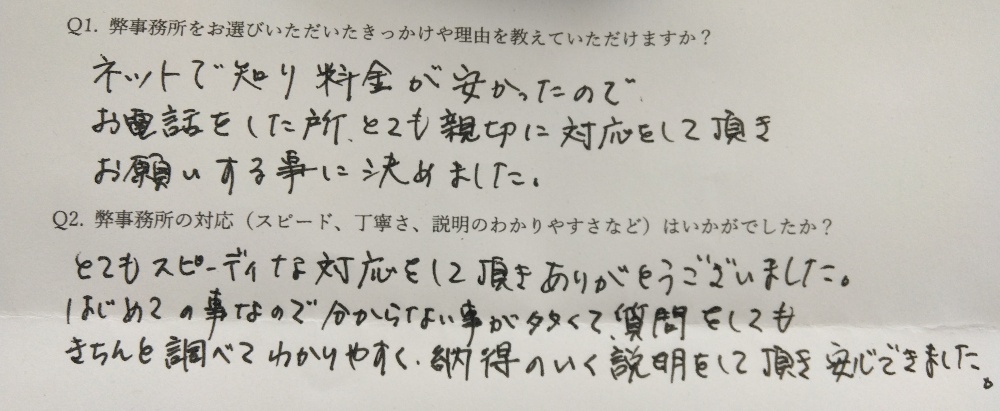 Q1. 弊事務所をお選びいただいたきっかけや理由を教えていただけますか？
ネットで知り料金が安かったので
お電話をした所、とても親切に対応をして頂き
お願いする事に決めました。
Q2. 弊事務所の対応（スピード、丁寧さ、説明のわかりやすさなど）はいかがでしたか？
とてもスピーディな対応をして頂きありがとうございました。
はじめての事なので分からない事が多くて、質問をしても
きちんと調べてわかりやすく、納得のいく説明をして頂き安心できました。